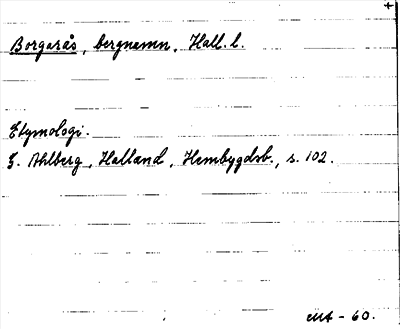 Borgarås, bergnamn, Hall. l.
Etymologi.
G. Ahlberg, Halland, Hembygdsb., s. 102.
MA - 60.